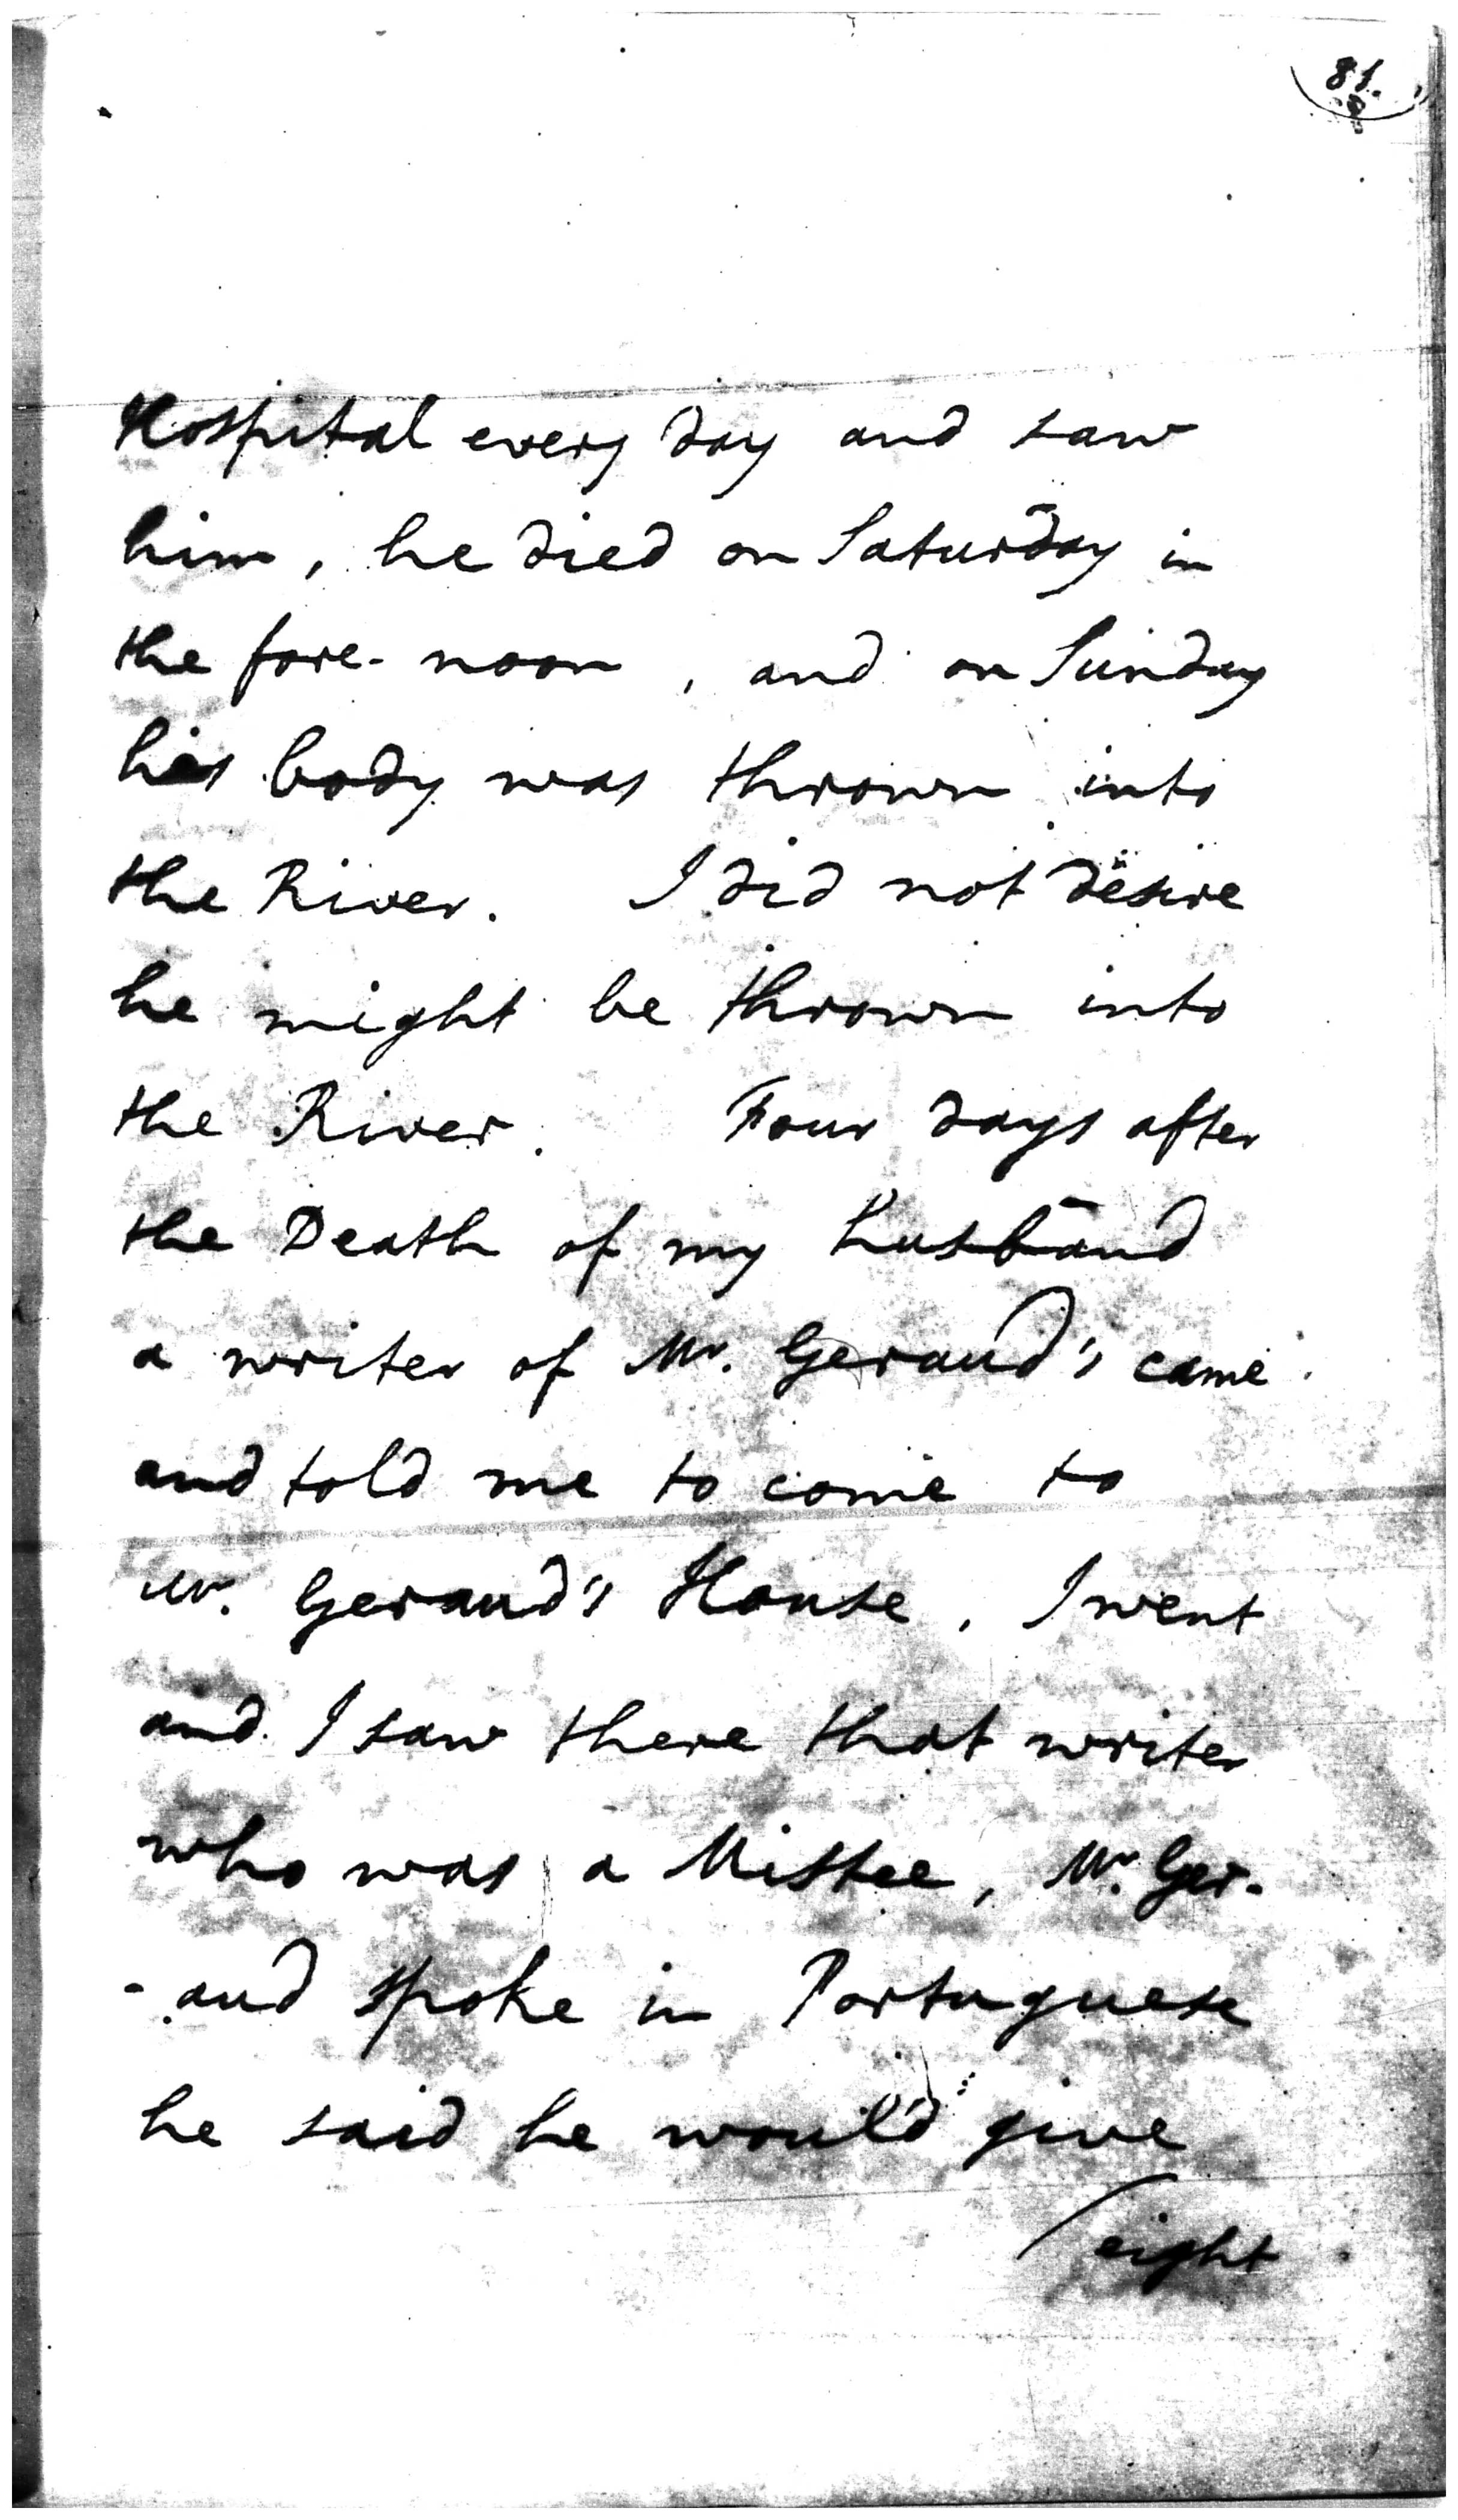 81.
Hospital every day and saw
him, he died on Saturday in
the fore-noon, and on Sunday
his body was thrown into
the River. I did not desire
he might be thrown into
the River. Four days after
the Death of my husband
a writer of Mr. Geraud's came
and told me to come to
Mr. Geraud's House, I went
and I saw there that writer
who was a Mistee, Mr. Ger-
-aud spoke in Portuguese
he said he would give
/eight